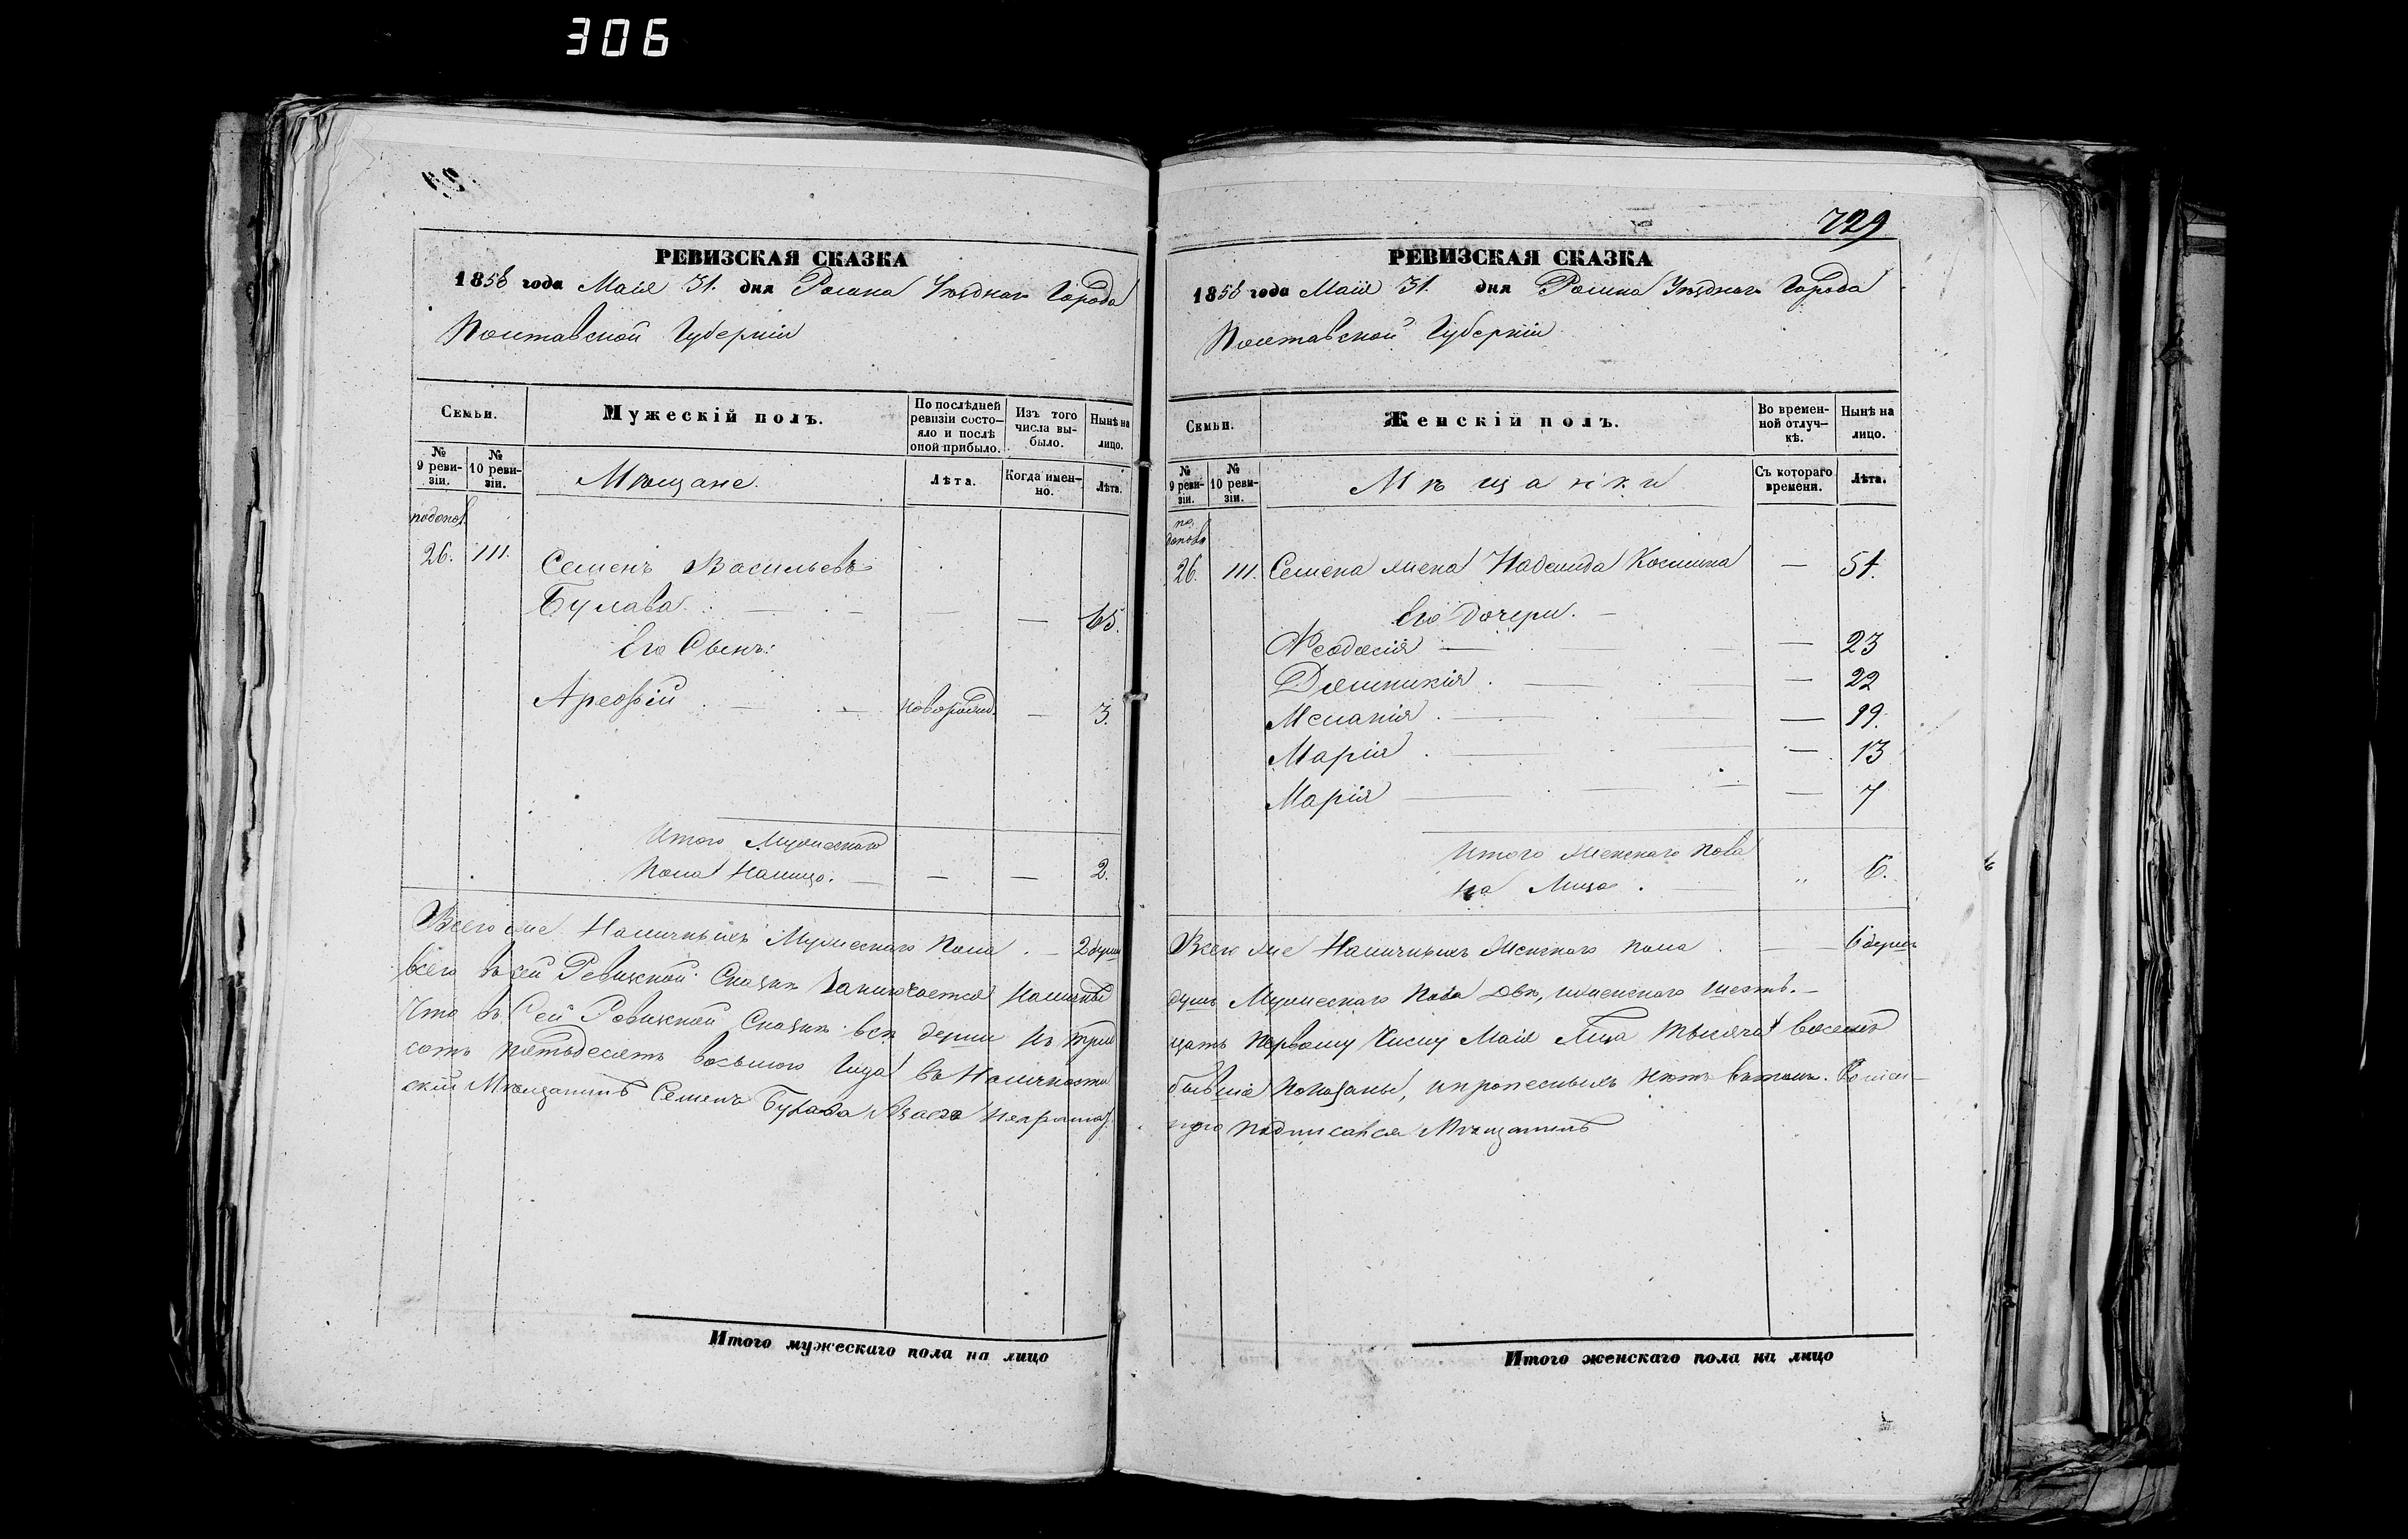 306
РЕВИЗСКАЯ СКАЗКА
1858 года Маія 31. дня Ромна Уѣзднаго Города
Полтавской Губерніи
Семьи.
Мужескій полъ.
По послѣдней ревизіи состояло и послѣ оной прибыло.
Изъ того числа выбыло.
Нынѣ на лицо.
№ 9 ревизіи.
№ 10 ревизіи.
Мѣщане.
Лѣта.
Когда именно.
Лѣта.
подопол.
26. 111. Семенъ Васильевъ
Булава — — — 65.
Его Сынъ:
Ареѳій — — новорожд. — 3.
Итого Мужескаго
Пола Налицо. — — — 2.
Всего же Наличныхъ Мужескаго Пола — 2 души
Всего въ сей Ревизской Сказкѣ Заключается Наличныхъ
Что въ Сей Ревизской Сказкѣ всѣ души къ трид
сотъ пятьдесятъ восьмого Года въ Наличности
скій Мѣщанинъ Семенъ Булава
729
РЕВИЗСКАЯ СКАЗКА
1858 года Маія 31. дня Ромна Уѣзднаго Города
Полтавской Губерніи
Семьи.
Женскій полъ.
Во временной отлучкѣ.
Нынѣ на лицо.
№ 9 ревизіи.
№ 10 ревизіи.
Мѣщанки
Съ котораго времени.
Лѣта.
по
26. 111. Семена жена Надежда Космина — 54.
Его дочери. —
Ѳеодосія — — — 23
Домникія — — — 22
Меланія — — — 19.
Марія — — — 13
Марія — — — 7
Итого Женскаго Пола
На Лицо. — „ 6.
Всего же Наличныхъ Женскаго пола — — 6 душъ
душъ Мужескаго Пола двѣ, и женскаго шесть. —
цать первому Числу Маія Тысяча восемь
бывшіе показаны, и прописныхъ нѣтъ въ томъ.
подписался Мѣщанинъ
Итого мужескаго пола на лицо
Итого женскаго пола на лицо